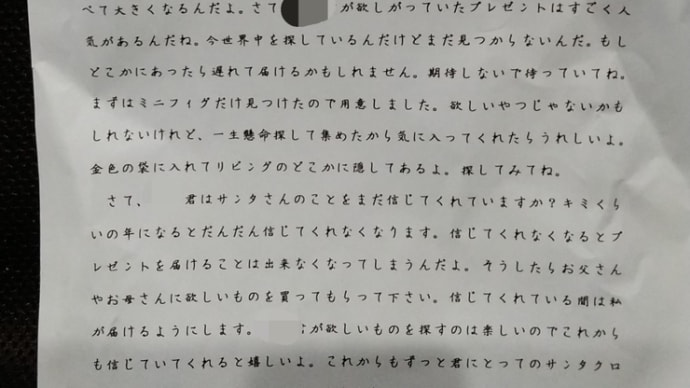 べて大きくなるんだよ。さて が欲しがっていたプレゼントはすごく人
気があるんだね。今世界中を探しているんだけどまだ見つからないんだ。もし
どこかにあったら遅れて届けるかもしれません。期待しないで待っていてね。
まずはミニフィグだけ見つけたので用意しました。欲しいやつじゃないかも
しれないけれど、一生懸命探して集めたから気に入ってくれたらうれしいよ。
金色の袋に入れてリビングのどこかに隠してあるよ。探してみてね。
さて、 君はサンタさんのことをまだ信じてくれていますか?キミくら
いの年になるとだんだん信じてくれなくなります。信じてくれなくなるとプ
レゼントを届けることは出来なくなってしまうんだよ。そうしたらお父さん
やお母さんに欲しいものを買ってもらって下さい。信じてくれている間は私
が届けるようにします。 が欲しいものを探すのは楽しいのでこれから
も信じていてくれると嬉しいよ。これからもずっと君にとってのサンタクロ